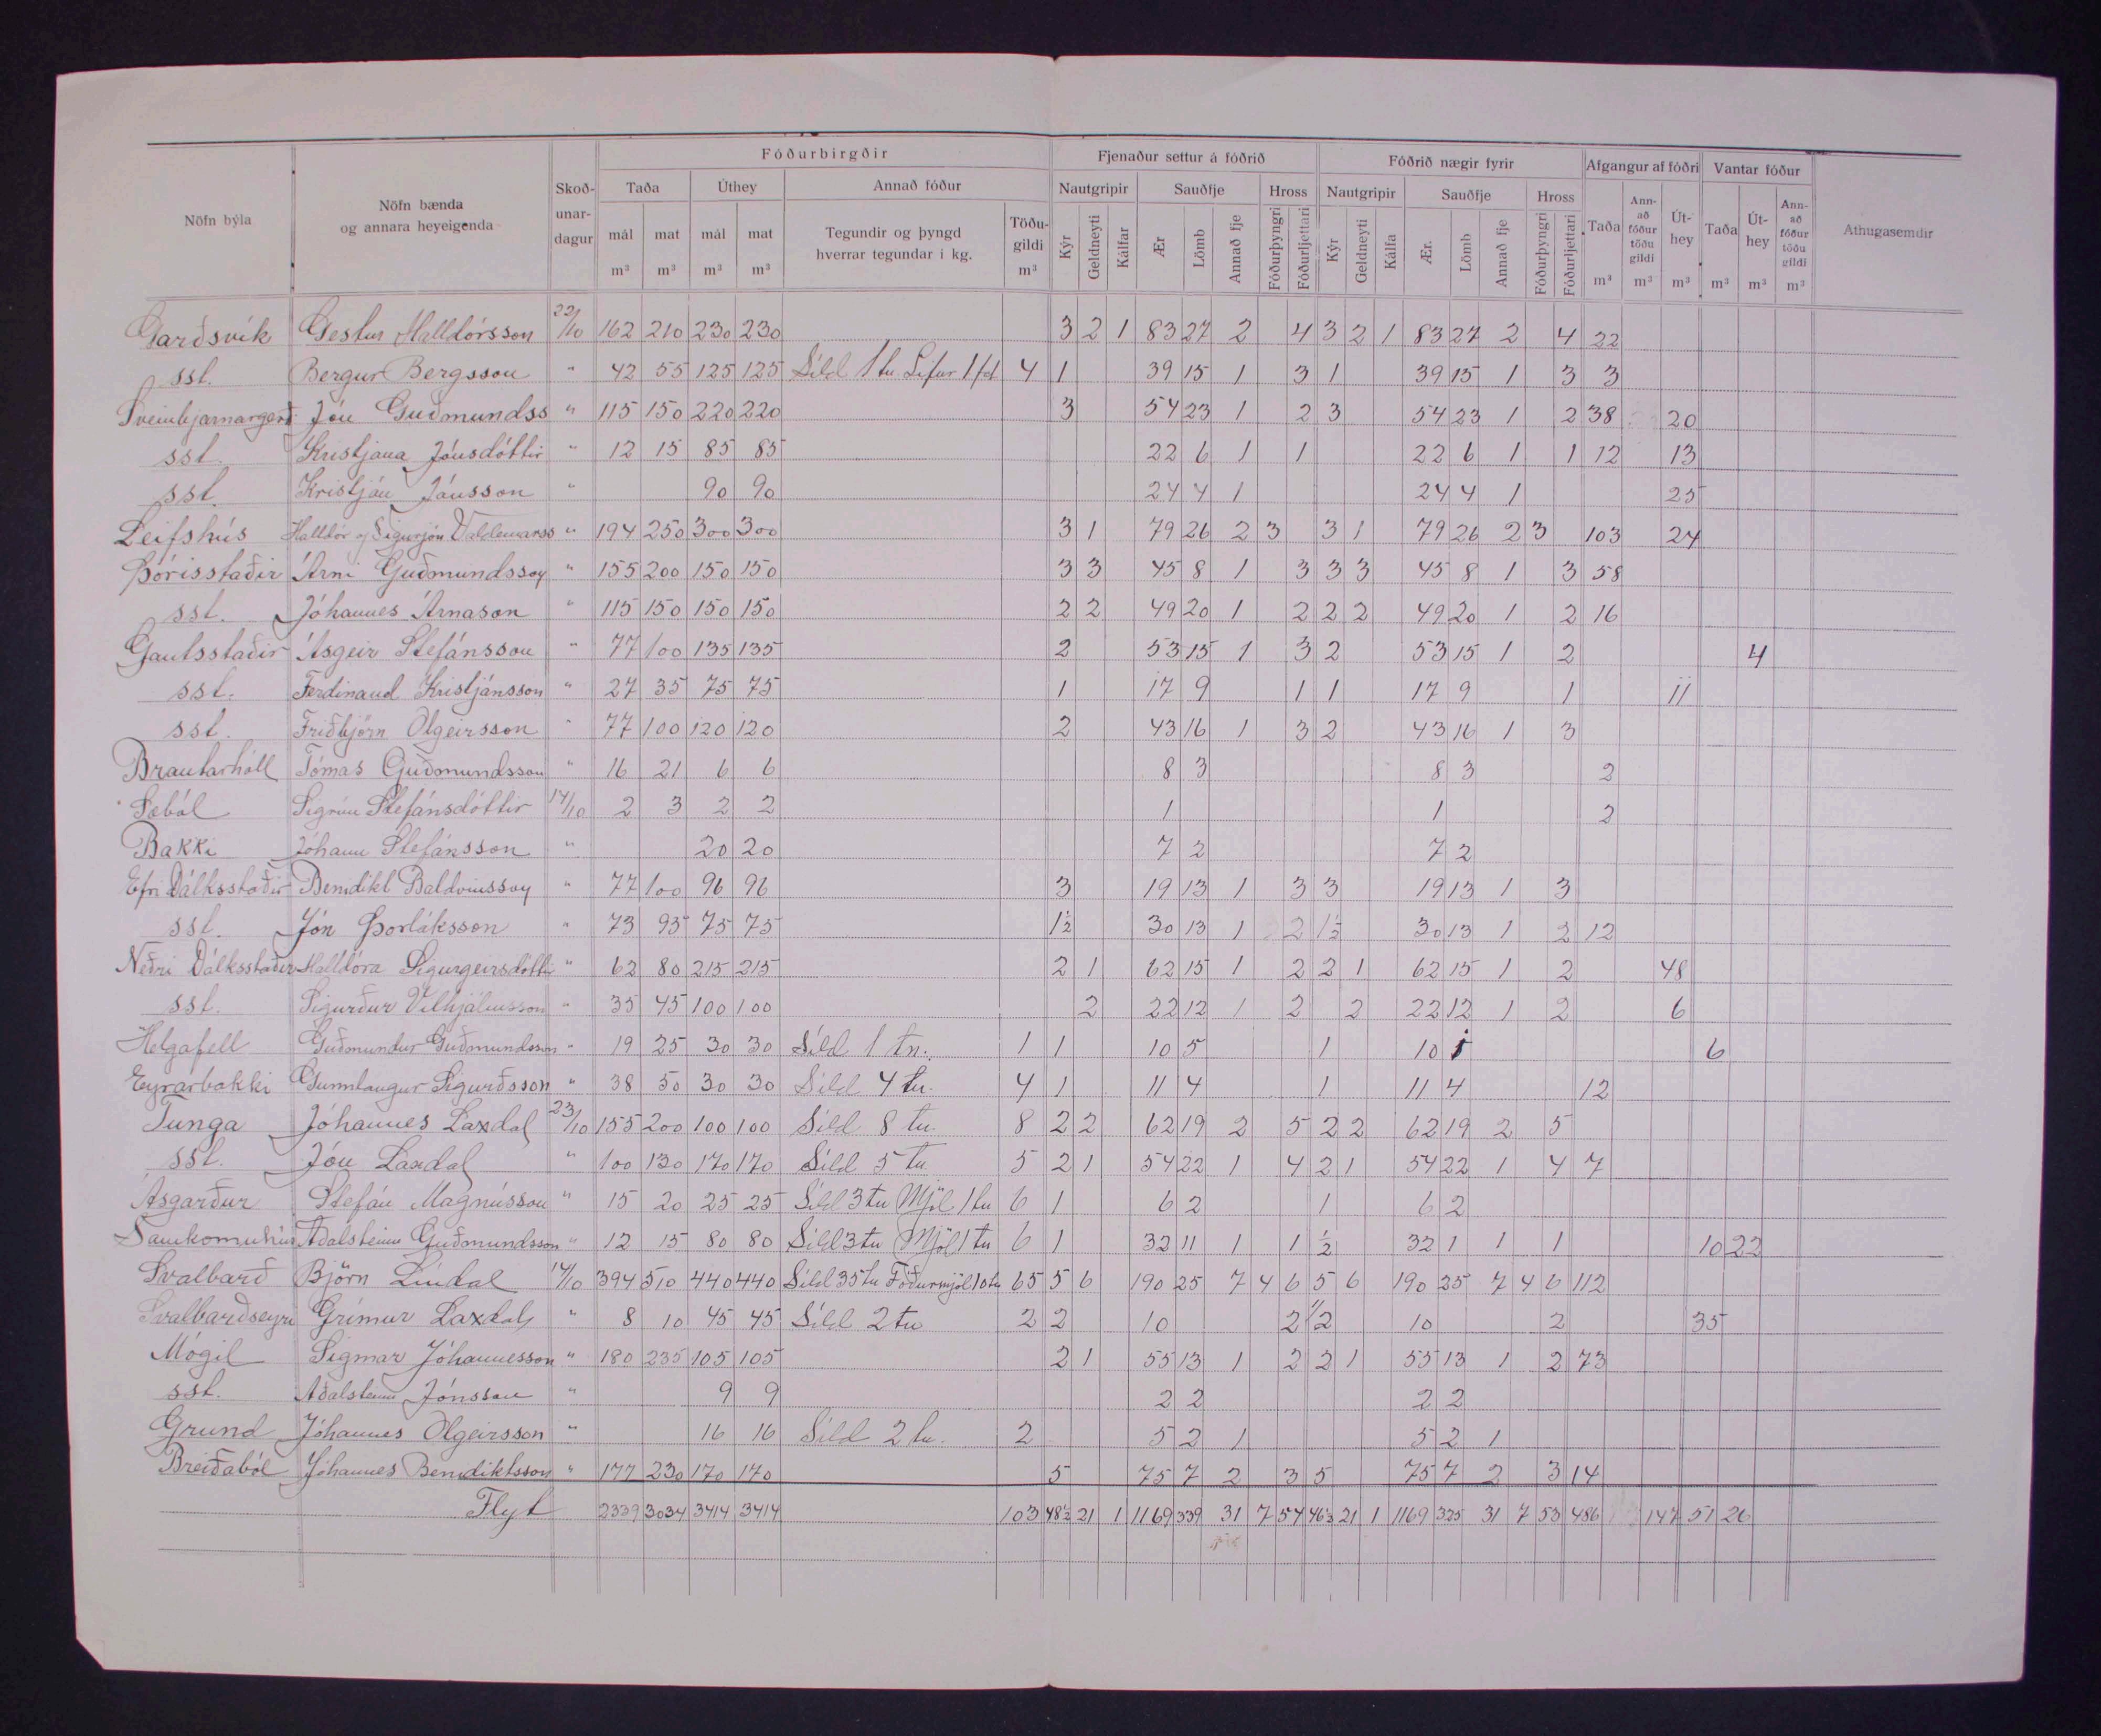 Fóðurbirgðir Fjenaður settur á fóðrið Fóðrið nægir fyrir Afgangur af fóðri Vantar fóður
Nöfn býla Nöfn bænda og annara heyeigenda Skoð-unar-dagur Taða Úthey Annað fóður Nautgripir Sauðfje Hross Nautgripir Sauðfje Hross Taða Ann-að fóður töðu gildi Út-hey Taða Út-hey Ann-að fóður töðu gildi Athugasemdir
mál mat mál mat Tegundir og þyngd hverrar tegundar í kg. Töðu-gildi Kýr Geldneyti Kálfar Ær Lömb Annað fje Fóðurþyngri Fóðurljettari Kýr Geldneyti Kálfa Ær. Lömb Annað fje Fóðurþyngri Fóðurljettari
m³ m³ m³ m³ m³ m³ m³ m³ m³ m³ m³
Garðsvík Gestur Halldórsson 22/10 162 210 230 230 3 2 1 83 27 2 4 3 2 1 83 27 2 4 22
sst. Bergur Bergsson " 42 55 125 125 Síld 1 tu. Lifur 1 fat 4 1 39 15 1 3 1 39 15 1 3 3
Sveinbjarnargerð Jón Guðmundss " 115 150 220 220 3 54 23 1 2 3 54 23 1 2 38 20
sst. Kristjana Jónsdóttir " 12 15 85 85 22 6 1 1 22 6 1 1 12 13
sst. Kristján Jónsson " 90 90 24 4 1 24 4 1 25
Leifshús Halldór og Sigurjón Valdemarss " 194 250 300 300 3 1 79 26 2 3 3 1 79 26 2 3 103 24
Þórisstaðir Árni Guðmundsson " 155 200 150 150 3 3 45 8 1 3 3 3 45 8 1 3 58
sst. Jóhannes Árnason " 115 150 150 150 2 2 49 20 1 2 2 2 49 20 1 2 16
Gautsstaðir Ásgeir Stefánsson " 77 100 135 135 2 53 15 1 3 2 53 15 1 2 4
sst. Ferdinand Kristjánsson " 27 35 75 75 1 17 9 1 1 17 9 1 11
sst. Friðbjörn Olgeirsson " 77 100 120 120 2 43 16 1 3 2 43 16 1 3
Brautarhóll Tómas Guðmundsson " 16 21 6 6 8 3 8 3 2
Sæból Sigrún Stefánsdóttir 14/10 2 3 2 2 1 1 2
Bakki Jóhann Stefánsson " 20 20 7 2 7 2
Efri Dálksstaðir Benidikt Baldvinsson " 77 100 96 96 3 19 13 1 3 3 19 13 1 3
sst. Jón Þorláksson " 73 95 75 75 1½ 30 13 1 2 1½ 30 13 1 2 12
Neðri Dálksstaðir Halldóra Sigurgeirsdóttir " 62 80 215 215 2 1 62 15 1 2 2 1 62 15 1 2 48
sst. Sigurður Vilhjálmsson " 35 45 100 100 2 22 12 1 2 2 22 12 1 2 6
Helgafell Guðmundur Guðmundsson " 19 25 30 30 Síld 1 tn. 1 1 10 5 1 10 5 6
Eyrarbakki Gunnlaugur Sigurðsson " 38 50 30 30 Síld 4 tu. 4 1 11 4 1 11 4 12
Tunga Jóhannes Laxdal 23/10 155 200 100 100 Síld 8 tu. 8 2 2 62 19 2 5 2 2 62 19 2 5
sst. Jón Laxdal " 100 130 170 170 Síld 5 tu 5 2 1 54 22 1 4 2 1 54 22 1 4 7
Ásgarður Stefán Magnússon " 15 20 25 25 Síld 3 tu Mjöl 1 tu 6 1 6 2 1 6 2
Samkomuhús Aðalsteinn Guðmundsson " 12 15 80 80 Síld 3 tu Mjöl 1 tu 6 1 32 11 1 1 ½ 32 1 1 1 10 22
Svalbarð Björn Líndal 14/10 394 510 440 440 Síld 35 tu Fóðurmjöl 10 tu 65 5 6 190 25 7 4 6 5 6 190 25 7 4 6 112
Svalbarðseyri Grímur Laxdal " 8 10 45 45 Síld 2 tu 2 2 10 2 1/2 10 2 35
Mógil Sigmar Jóhannesson " 180 235 105 105 2 1 55 13 1 2 2 1 55 13 1 2 73
sst. Aðalsteinn Jónsson " 9 9 2 2 2 2
Grund Jóhannes Olgeirsson " 16 16 Síld 2 tu. 2 5 2 1 5 2 1
Breiðaból Jóhannes Benidiktsson " 177 230 170 170 5 75 7 2 3 5 75 7 2 3 14
Flyt 2339 3034 3414 3414 103 48½ 21 1 1169 339 31 7 54 46½ 21 1 1169 325 31 7 53 486 147 51 26